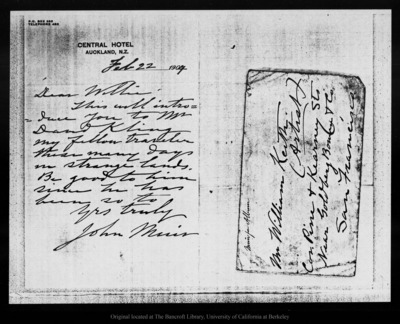 P.O. BOX 265
TELEPHONE 492
CENTRAL HOTEL
AUCKLAND, N.Z.
Feb 22 1904
Dear Willie:
This will intro=
=duce you to Mr
Dan
my fellow traveller
these many days
in strange lands.
Be good to him
since he has
been so to
Yrs truly
John Muir
Mr William Keith
(Artist)
Cor Pine & Kearny Sts
San Francisco
Original located at The Bancroft Library, University of California at Berkeley